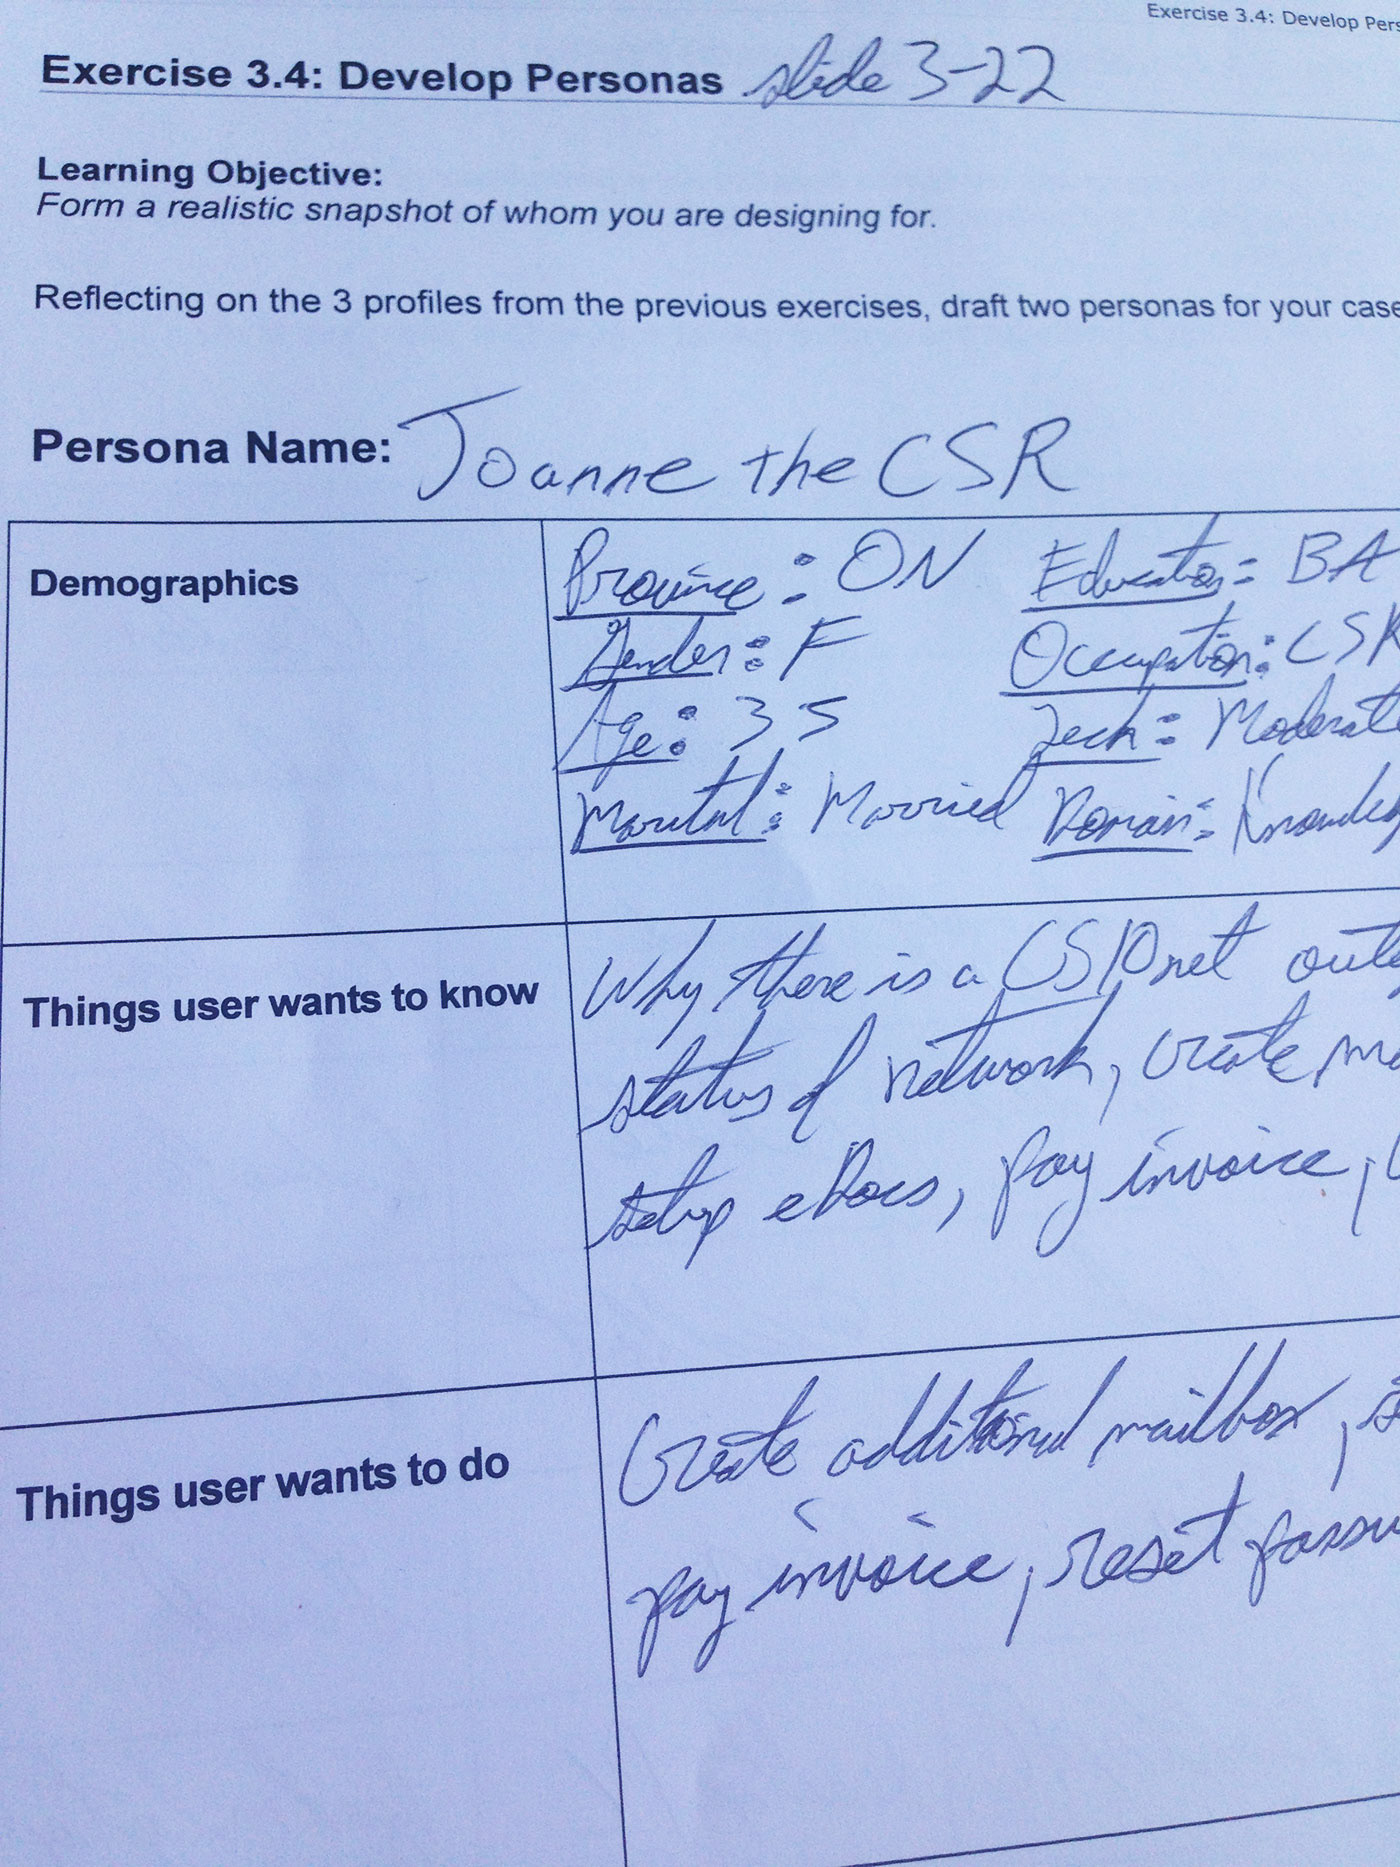 Exercise 3.4: Develop Pers
Exercise 3.4: Develop Personas slide 3-22
Learning Objective:
Form a realistic snapshot of whom you are designing for.
Reflecting on the 3 profiles from the previous exercises, draft two personas for your case
Persona Name: Joanne the CSR
Demographics
Province: ON Education: BA
Gender: F Occupation: CSR
Age: 35 Tech: Moderate
Marital: Married Domain: Knowledg
Things user wants to know
Why there is a CSIOnet outa
status of network, create ma
setup eDocs, pay invoice,
Things user wants to do
Create additional mailbox, s
pay invoice, reset passw